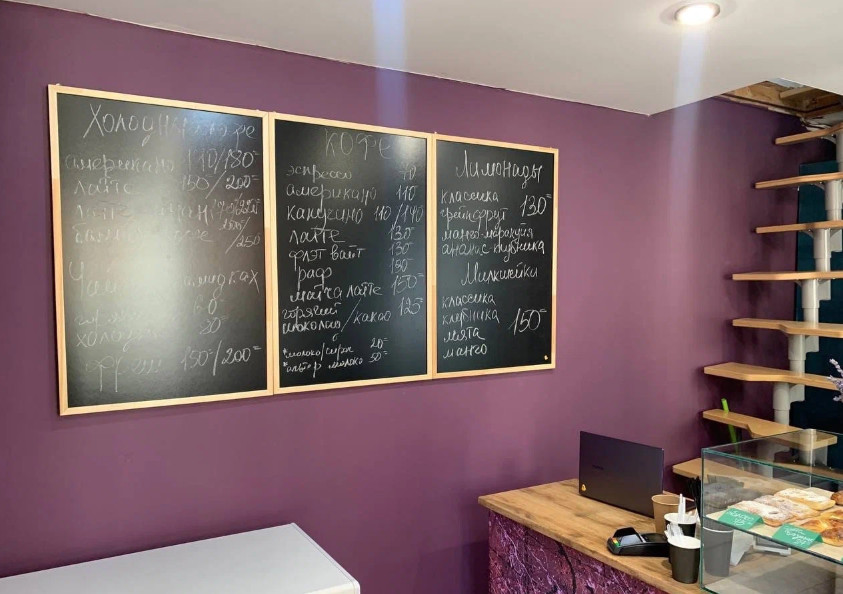 Холодный кофе
американо 110/180=
лайте 150/200=
/250
Чай
60
холодный 80=
фреш 150=/200=
КОФЕ
эспрессо 90
американо 110
капучино 110/140
лайте 130
флэт вайт 130
раф 180
матча лайте 150=
горячий
шоколад/какао 125=
*молоко/сироп 20=
*альтер молоко 50=
Лимонады
классика
грейпфрут 130=
манго-маракуйя
ананас-клубника
Милкшейки
классика
клубника 150=
мята
манго